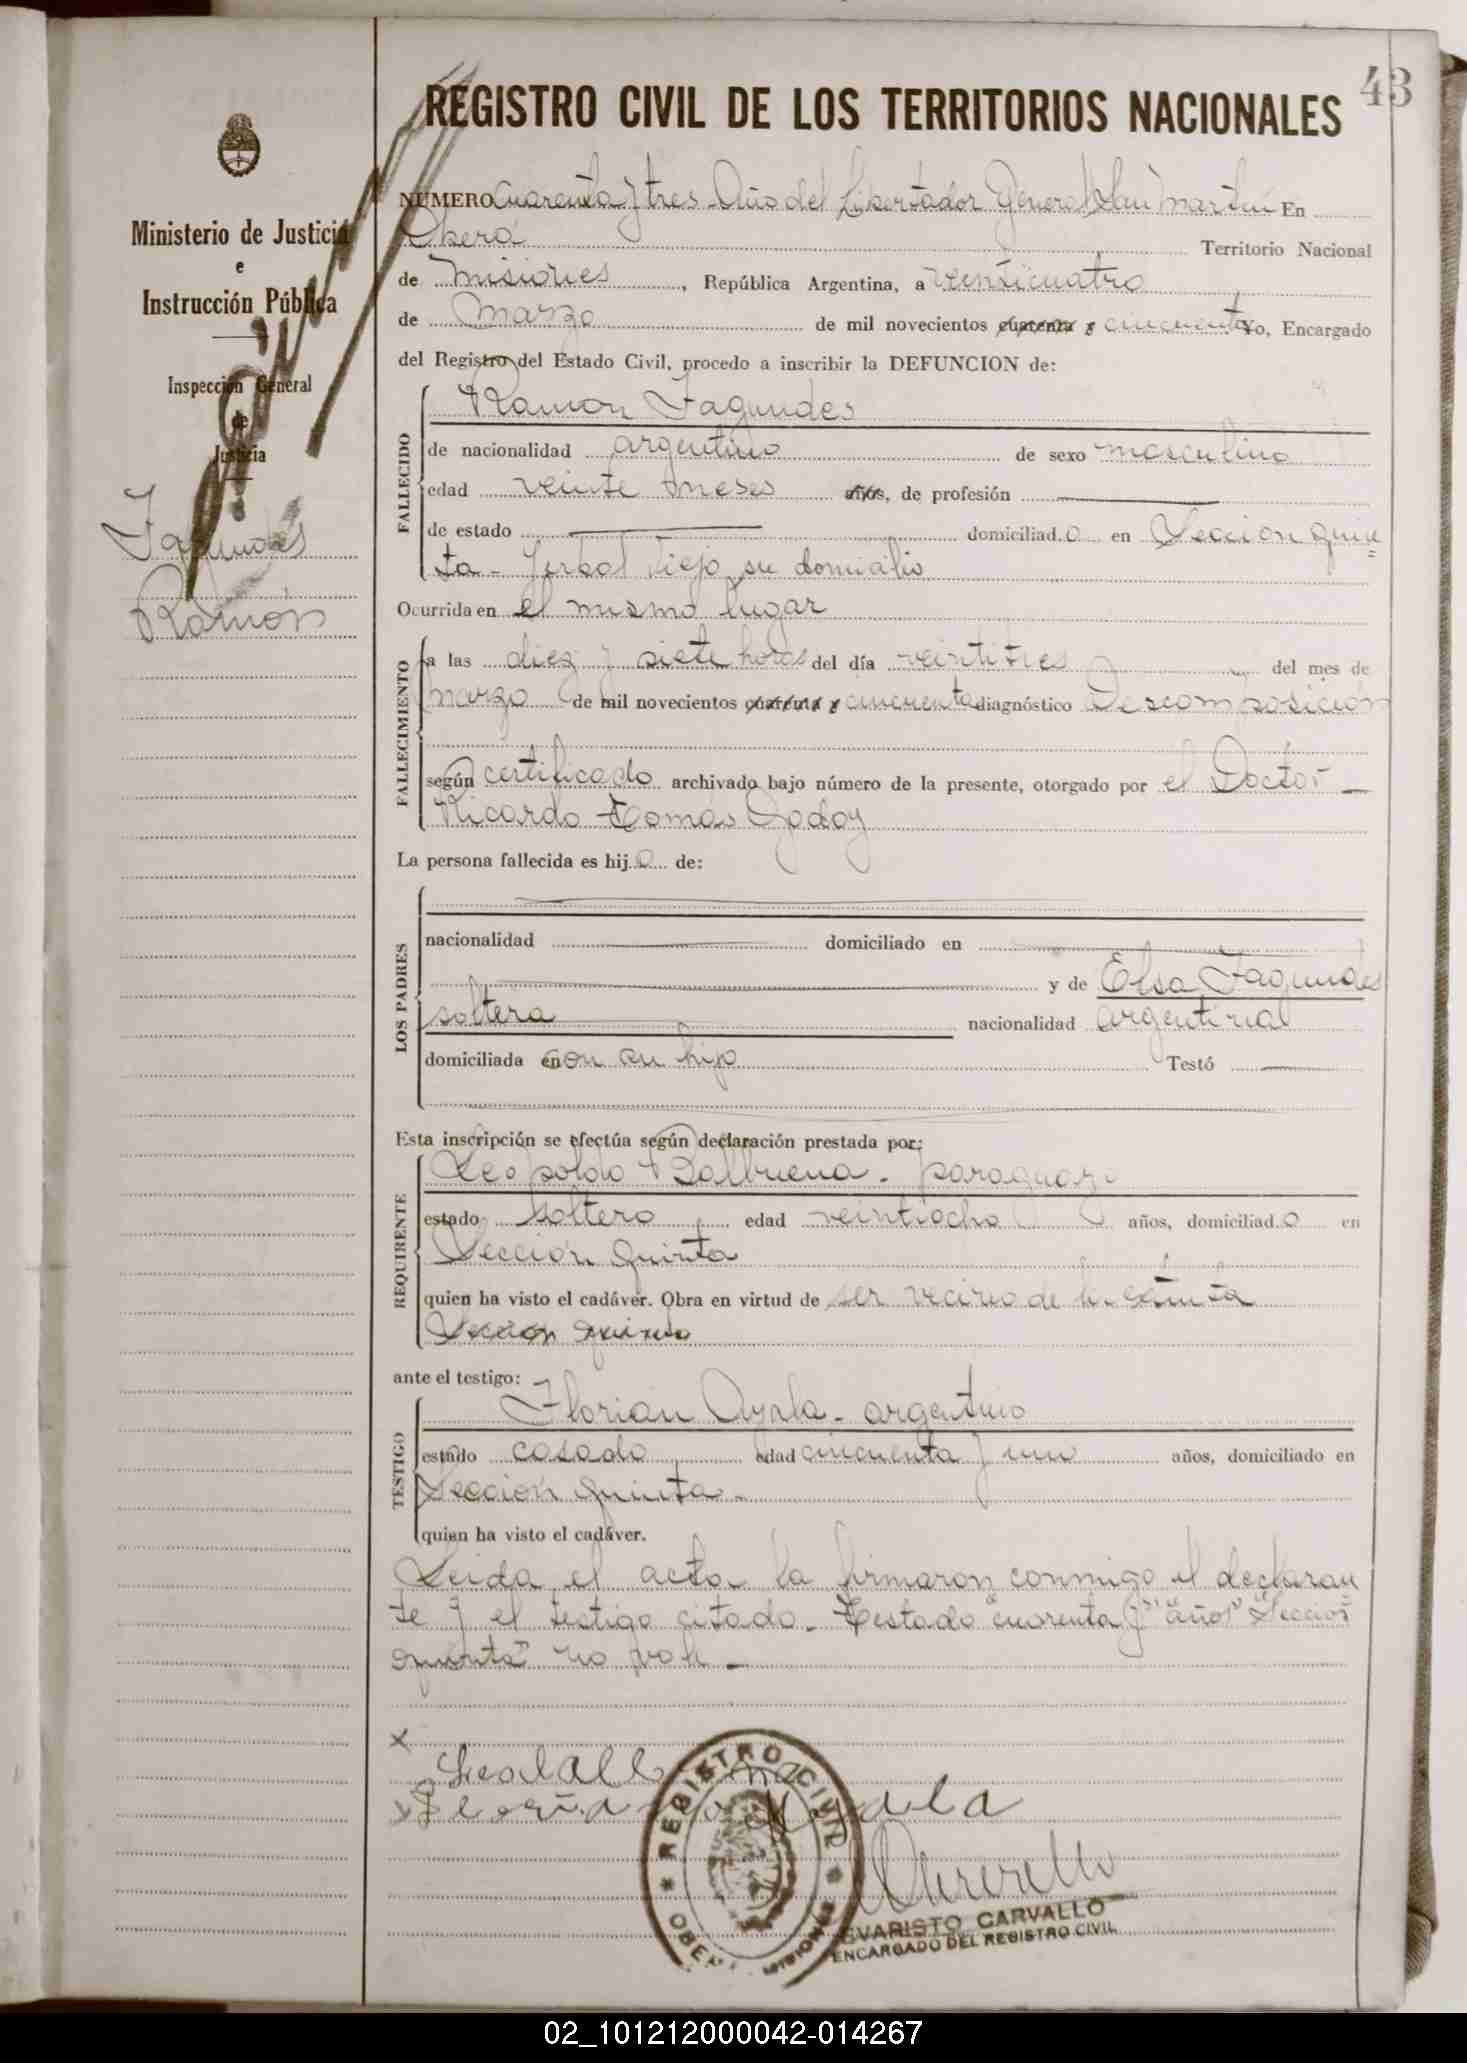 43
REGISTRO CIVIL DE LOS TERRITORIOS NACIONALES
Ministerio de Justicia
e
Instrucción Pública
Inspección General
de
Justicia
Fagundes
Ramón
NUMERO Cuarenta y tres Año del Libertador General San Martín En
Oberá Territorio Nacional
de Misiones, República Argentina, a veinticuatro
de Marzo de mil novecientos cuarenta y cincuenta Yo, Encargado
del Registro del Estado Civil, procedo a inscribir la DEFUNCION de:
FALLECIDO
Ramon Fagundes
de nacionalidad argentino de sexo masculino
edad veinte meses años, de profesión
de estado domiciliad o en Seccion quin
ta - Yerbal Viejo su domicilio
Ocurrida en el mismo lugar
FALLECIMIENTO
a las diez y siete horas del día veintitres del mes de
marzo de mil novecientos cuarenta y cincuenta diagnóstico Descomposición
según certificado archivado bajo número de la presente, otorgado por el Doctor
Ricardo Tomás Godoy
La persona fallecida es hij o de:
LOS PADRES
nacionalidad domiciliado en
y de Elsa Fagundes
soltera nacionalidad argentina
domiciliada en con su hijo Testó
Esta inscripción se efectúa según declaración prestada por:
REQUIRENTE
Leopoldo Balbuena - paraguayo
estado soltero edad veintiocho años, domiciliad o en
Sección quinta
quien ha visto el cadáver. Obra en virtud de ser vecino de
Sección quinta
ante el testigo:
TESTIGO
Florian Ayala - argentino
estado casado edad cincuenta y uno años, domiciliado en
Sección quinta -
quien ha visto el cadáver.
Leida el acta la firmaron conmigo el declaran
te y el testigo citado - Testado "cuarenta y" "años" "Sección
quinta" no vale -
x
x Ayala
REGISTRO CIVIL
OBERA MISIONES
EVARISTO CARVALLO
ENCARGADO DEL REGISTRO CIVIL
02_101212000042-014267